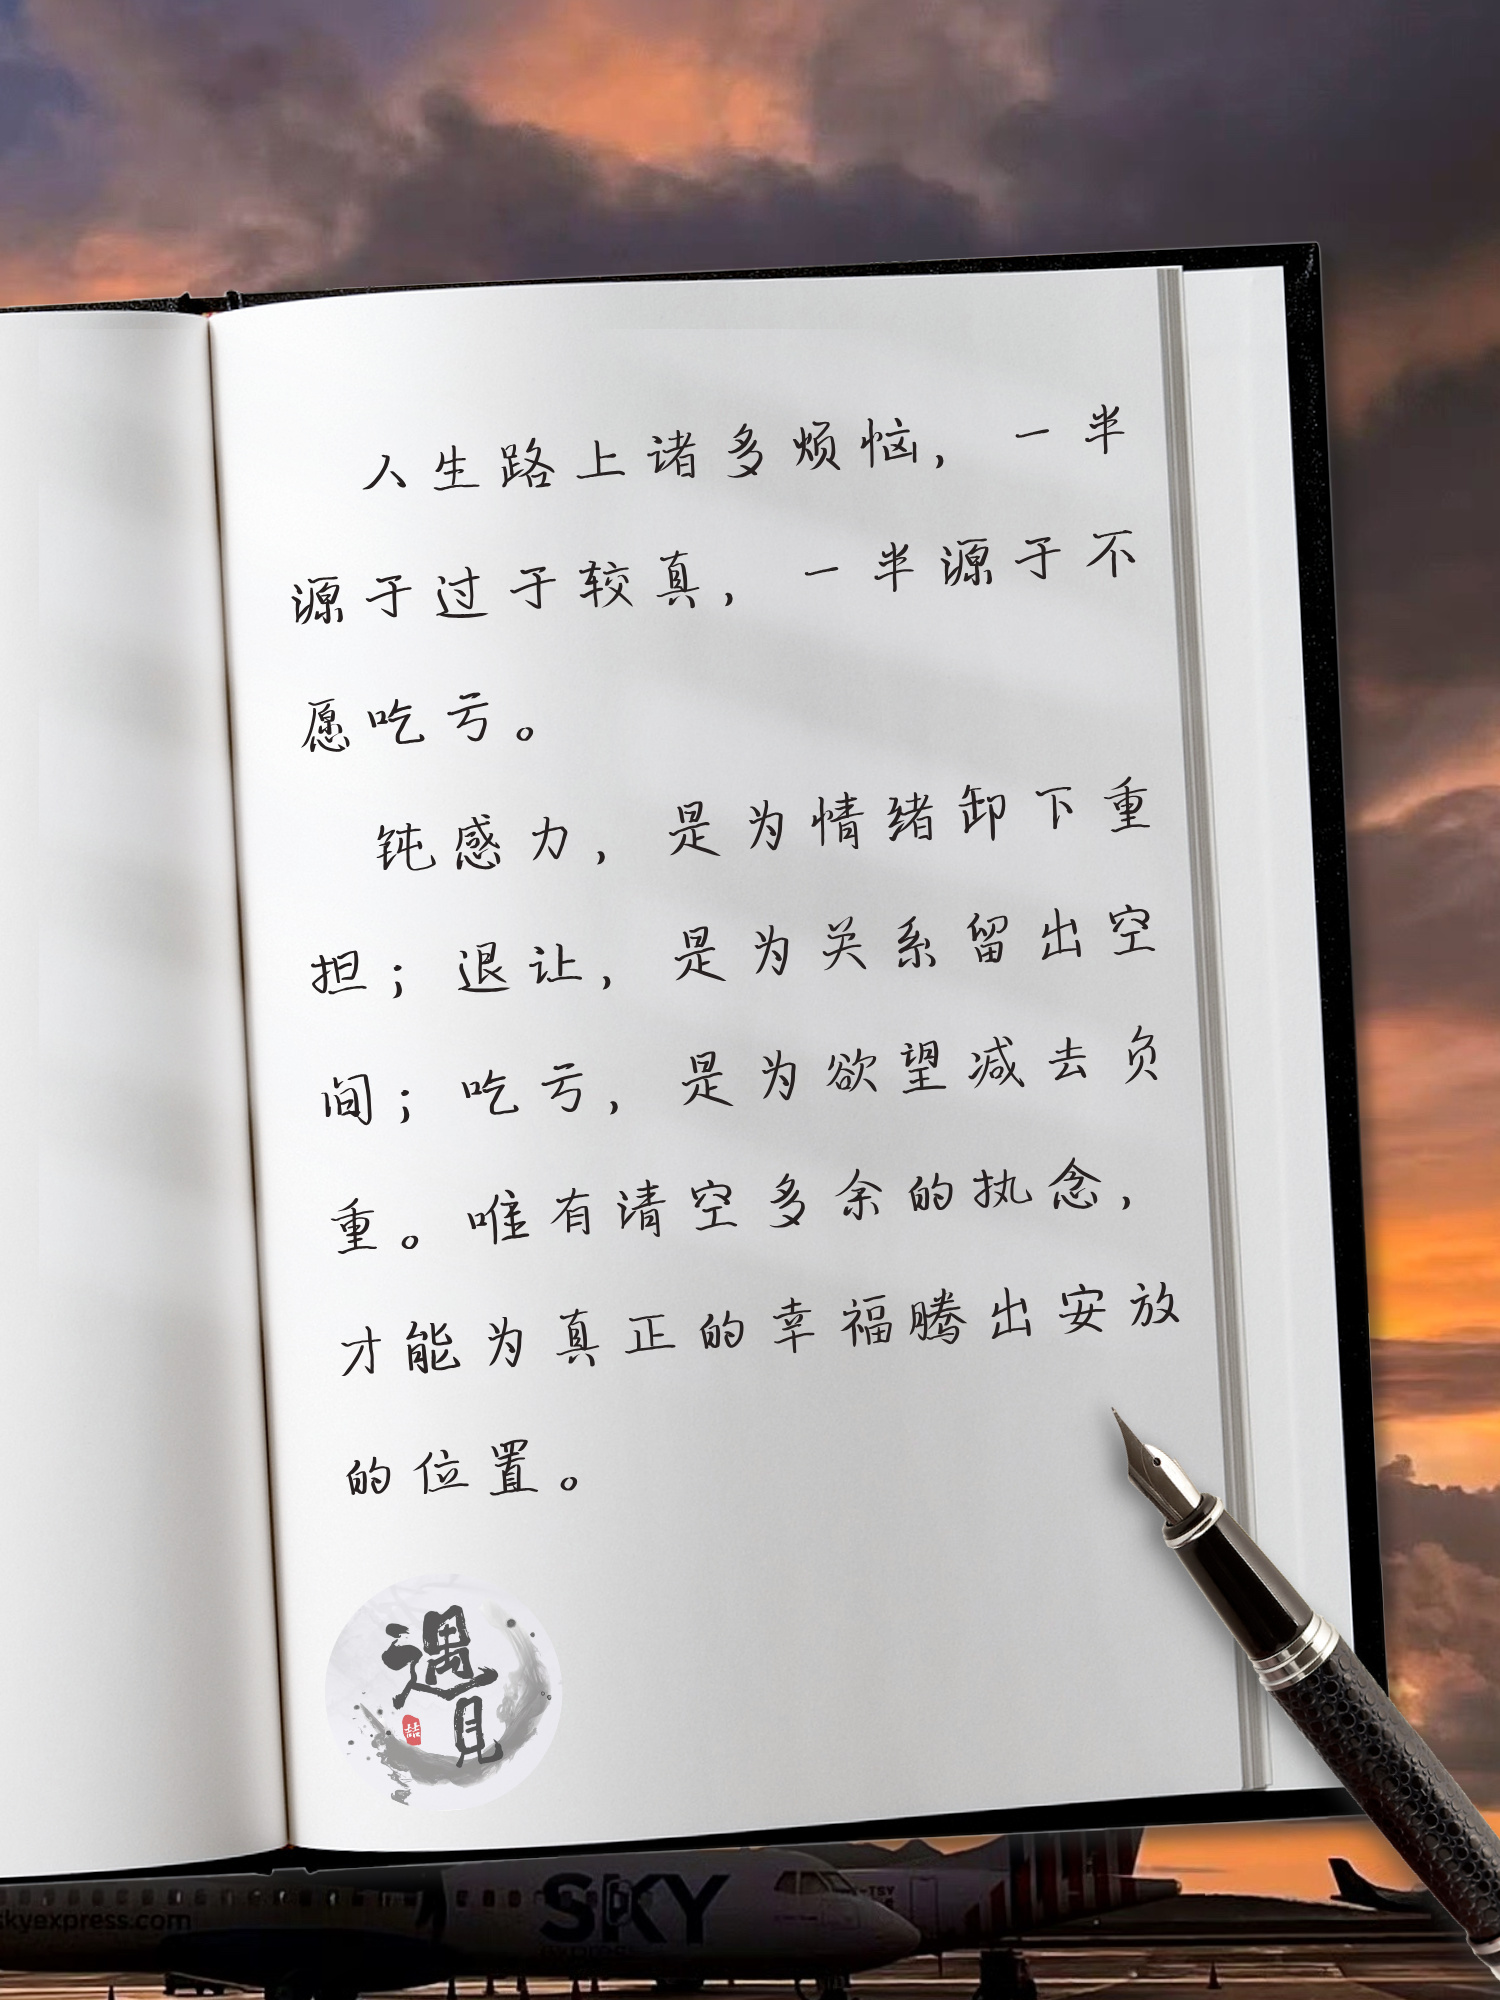 人生路上诸多烦恼，一半
源于过于较真，一半源于不
愿吃亏。
钝感力，是为情绪卸下重
担；退让，是为关系留出空
间；吃亏，是为欲望减去负
重。唯有清空多余的执念，
才能为真正的幸福腾出安放
的位置。
遇
见
喆
SKY
skyexpress.com